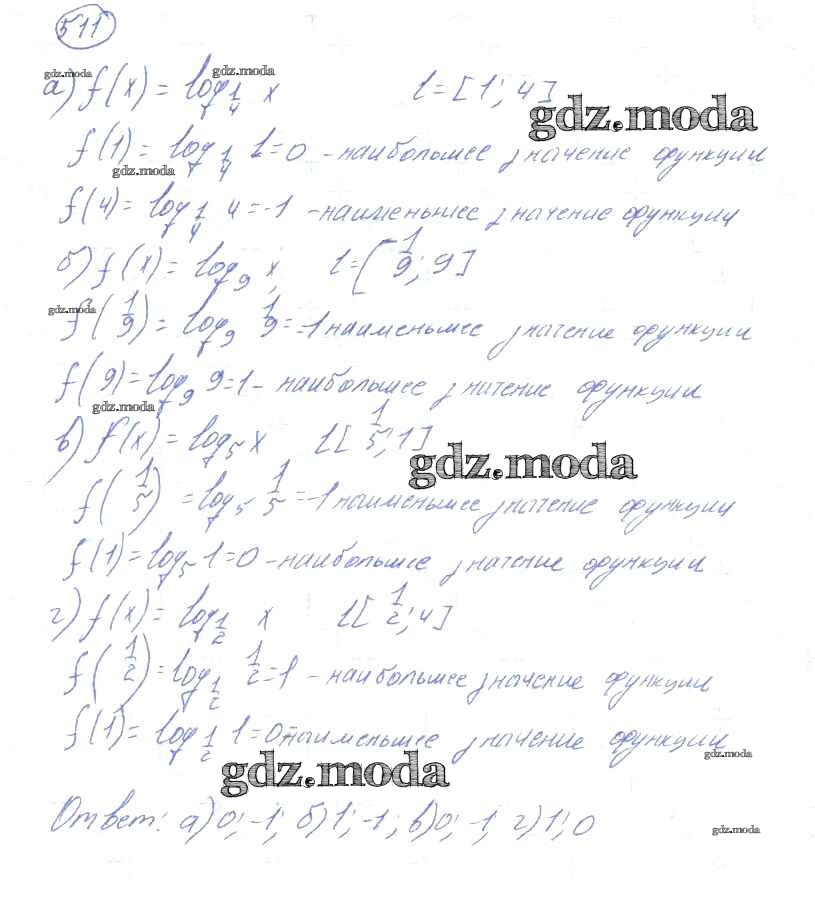 511
gdz.moda gdz.moda
а) f(x) = log_{1/4} x l = [1; 4]
gdz.moda
f(1) = log_{1/4} 1 = 0 - наибольшее значение функции
gdz.moda
f(4) = log_{1/4} 4 = -1 - наименьшее значение функции
б) f(x) = log_9 x, l = [1/9; 9]
gdz.moda
f(1/9) = log_9 1/9 = -1 наименьшее значение функции
f(9) = log_9 9 = 1 - наибольшее значение функции
gdz.moda
в) f(x) = log_5 x l [1/5; 1]
gdz.moda
f(1/5) = log_5 1/5 = -1 наименьшее значение функции
f(1) = log_5 1 = 0 - наибольшее значение функции
г) f(x) = log_{1/2} x l [1/2; 4]
f(1/2) = log_{1/2} 1/2 = 1 - наибольшее значение функции
f(1) = log_{1/2} 1 = 0 - наименьшее значение функции
gdz.moda
gdz.moda
Ответ: а) 0; -1; б) 1; -1; в) 0; -1, г) 1; 0
gdz.moda